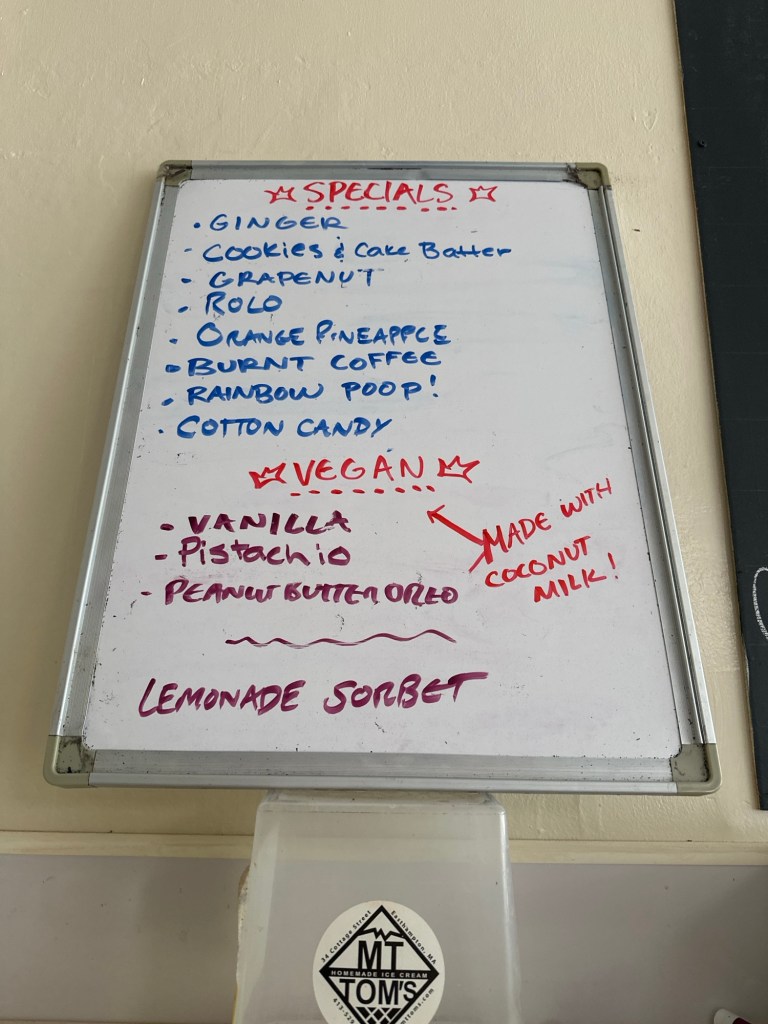 SPECIALS
• GINGER
- COOKIES & Cake Batter
• GRAPENUT
• ROLO
• ORANGE PINEAPPLE
• BURNT COFFEE
• RAINBOW POOP!
• COTTON CANDY
VEGAN
MADE WITH
COCONUT
MILK!
- VANILLA
- Pistachio
- PEANUT BUTTER OREO
LEMONADE SORBET
34 Cottage Street Easthampton, MA
MT
HOMEMADE ICE CREAM
TOM'S